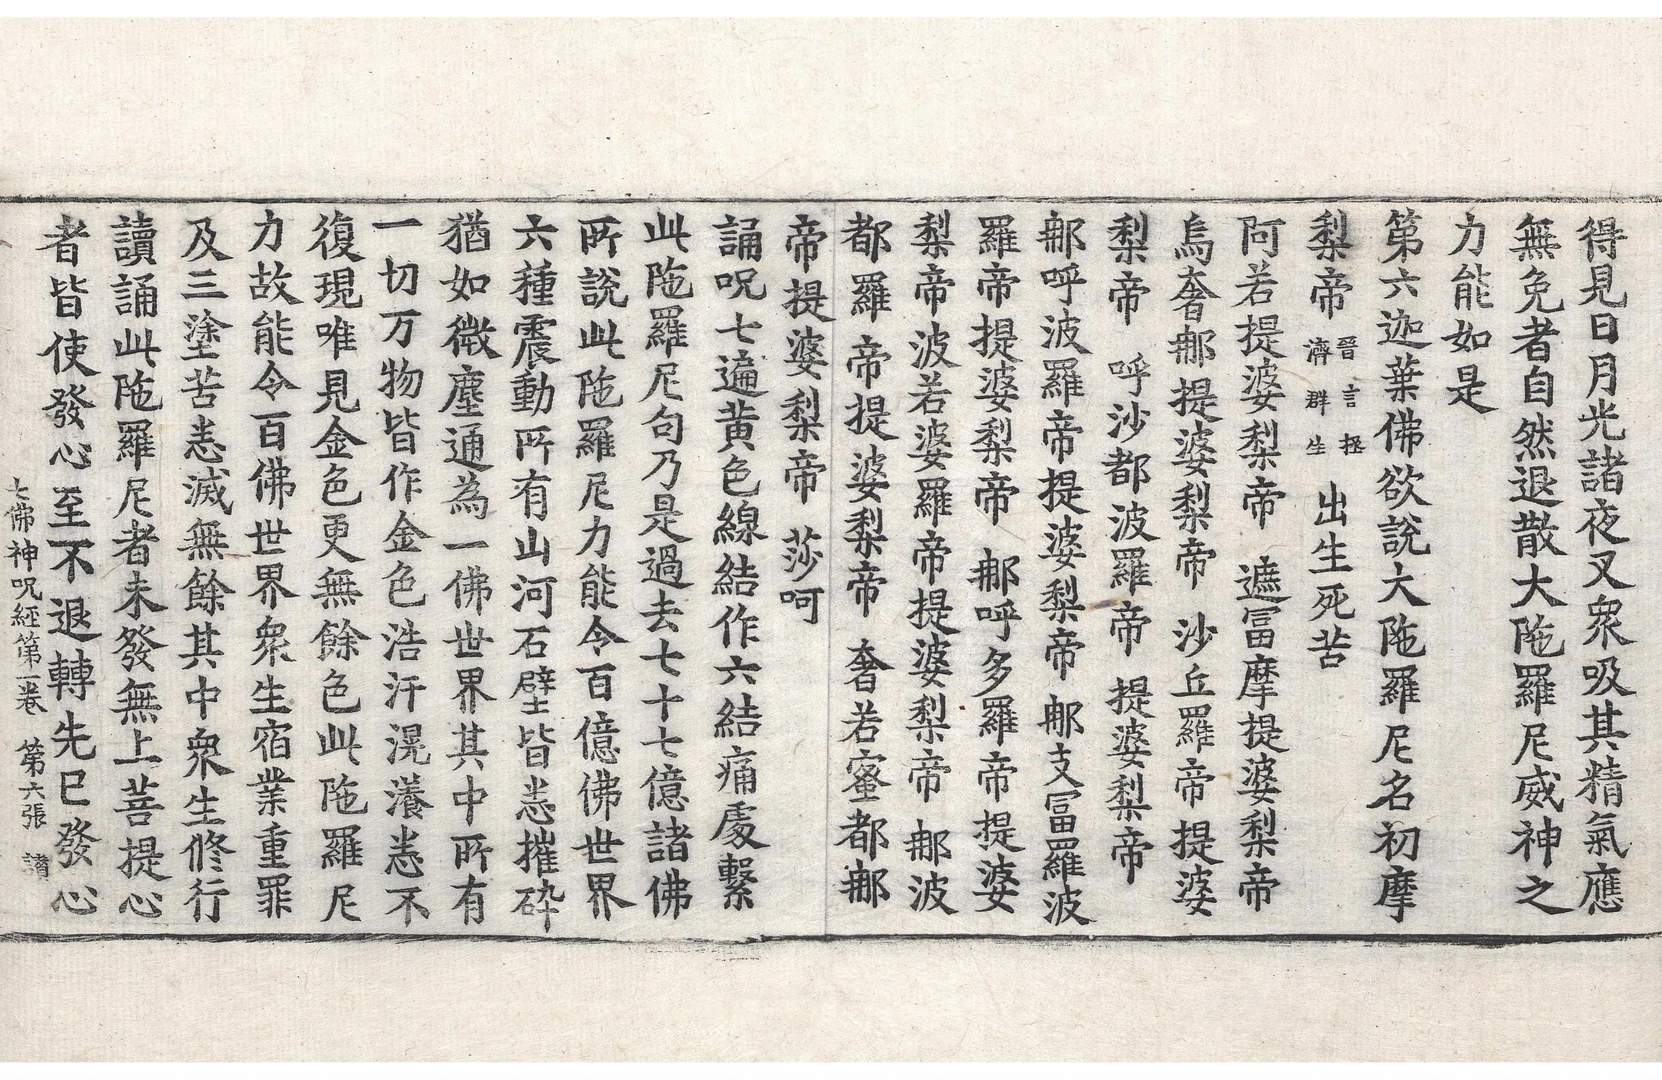 得見日月光諸夜叉衆吸其精氣應
無免者自然退散大陁羅尼威神之
力能如是
第六迦葉佛欲說大陁羅尼名初摩
梨帝 晉言拯濟群生 出生死苦
阿若提婆梨帝 遮冨摩提婆梨帝
烏奢㖠提婆梨帝 沙丘羅帝提婆
梨帝 呼沙都波羅帝 提婆梨帝
㖠呼波羅帝提婆梨帝 㖠支冨羅波
羅帝提婆梨帝 㖠呼多羅帝提婆
梨帝波若婆羅帝提婆梨帝 㖠波
都羅帝提婆梨帝 奢若蜜都㖠
帝提婆梨帝 莎呵
誦呪七遍黄色線結作六結痛處繫
此陁羅尼句乃是過去七十七億諸佛
所說此陁羅尼力能令百億佛世界
六種震動所有山河石壁皆悉摧碎
猶如微塵通為一佛世界其中所有
一切万物皆作金色浩汗滉瀁悉不
復現唯見金色更無餘色此陁羅尼
力故能令百佛世界衆生宿業重罪
及三塗苦悉滅無餘其中衆生修行
讀誦此陁羅尼者未發無上菩提心
者皆使發心至不退轉先已發心
七佛神呪經第一卷 第六張 讃